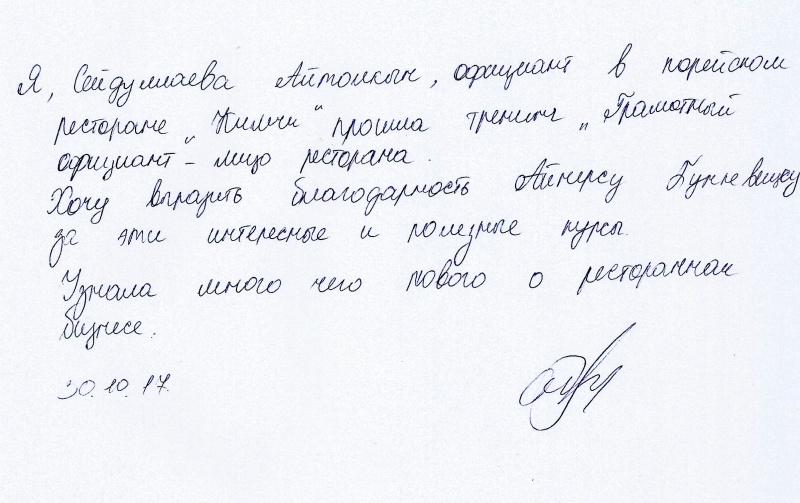 Я, Сейдуллаева Айтолкын, официант в корейском
ресторане „Кимчи" прошла тренинг „Грамотный
официант - лицо ресторана.
Хочу выразить благодарность Айнуру
за эти интересные и полезные курсы.
Узнала много чего нового о ресторанном
бизнесе.
30.10.17.